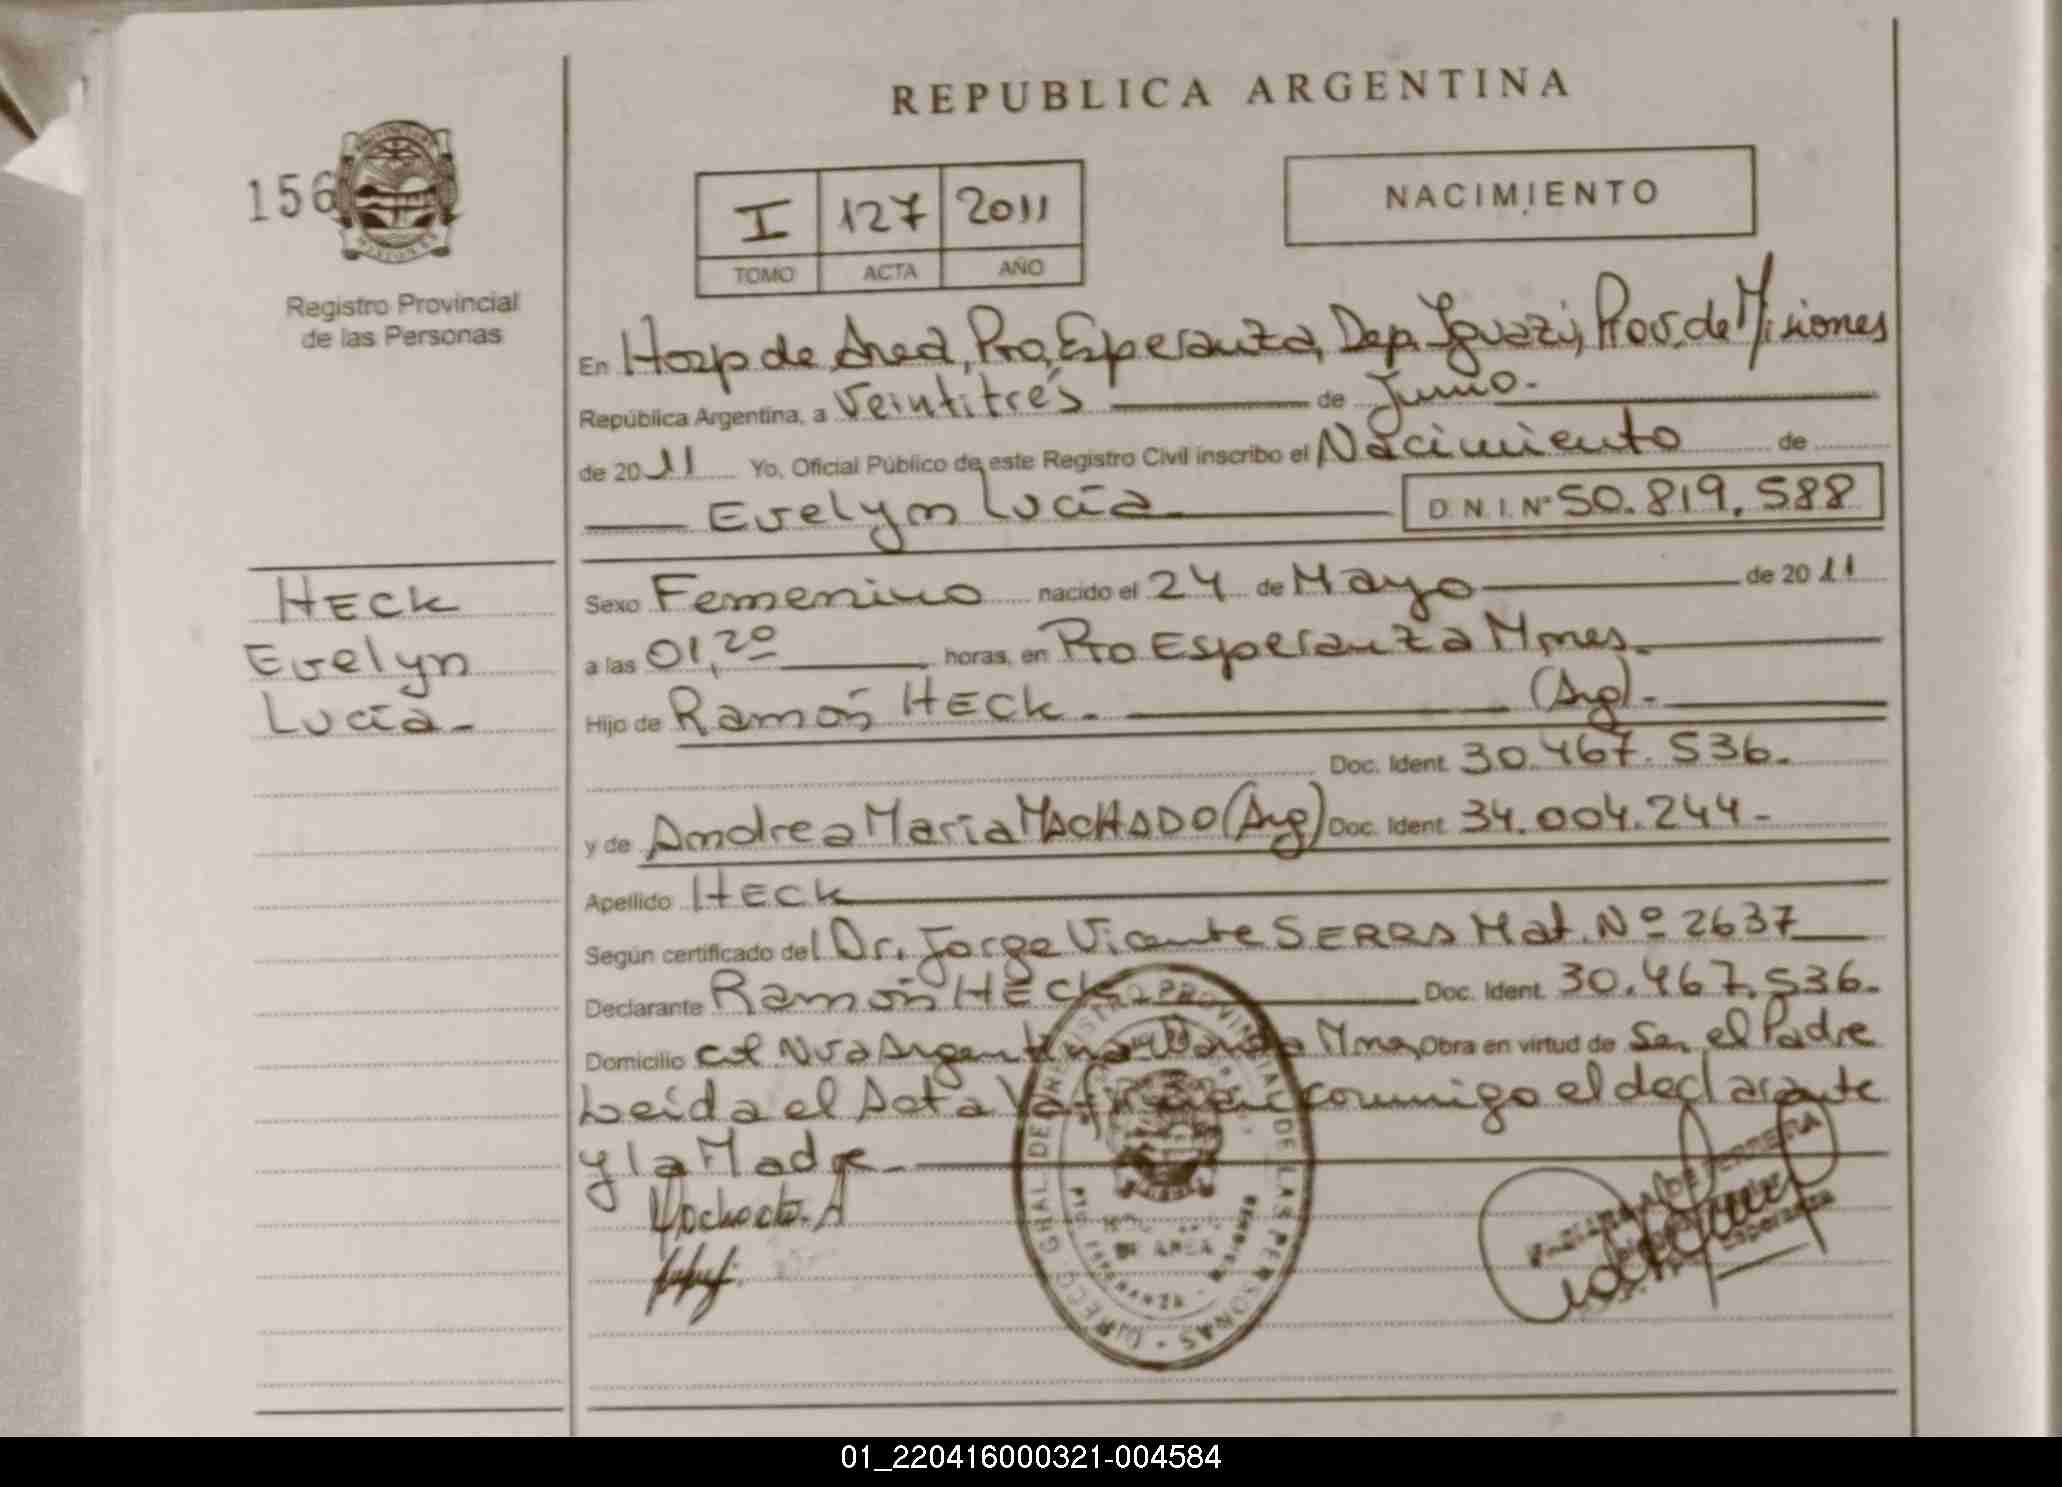 REPUBLICA ARGENTINA
156
Registro Provincial
de las Personas
I 127 2011
TOMO ACTA AÑO
NACIMIENTO
En Hosp de Area, Pto, Esperanza, Dep. Iguazú, Prov. de Misiones
República Argentina, a Veintitrés de Junio.-
de 2011 Yo, Oficial Público de este Registro Civil inscribo el Nacimiento de
Evelyn Lucía D.N.I. Nº 50.819.588
HECK
Evelyn
Lucía-
Sexo Femenino nacido el 24 de Mayo de 2011
a las 01,20 horas, en Pto Esperanza Mnes.
Hijo de Ramón HECK.- (Arg).-
Doc. Ident. 30.467.536.
y de Andrea María MACHADO (Arg) Doc. Ident. 34.004.244-
Apellido HECK
Según certificado del Dr. Jorge Vicente SERRA Mat. Nº 2637
Declarante Ramón HECK Doc. Ident. 30.467.536.
Domicilio col Nva Argentina Wanda Mnes Obra en virtud de Ser el Padre
Leída el Acta conmigo el declarante
y la Madre.-
DIRECC GRAL. DEL REGISTRO PROVINCIAL DE LAS PERSONAS
DE AREA
PTO. ESPERANZA
FERREIRA
Esperanza
01_220416000321-004584